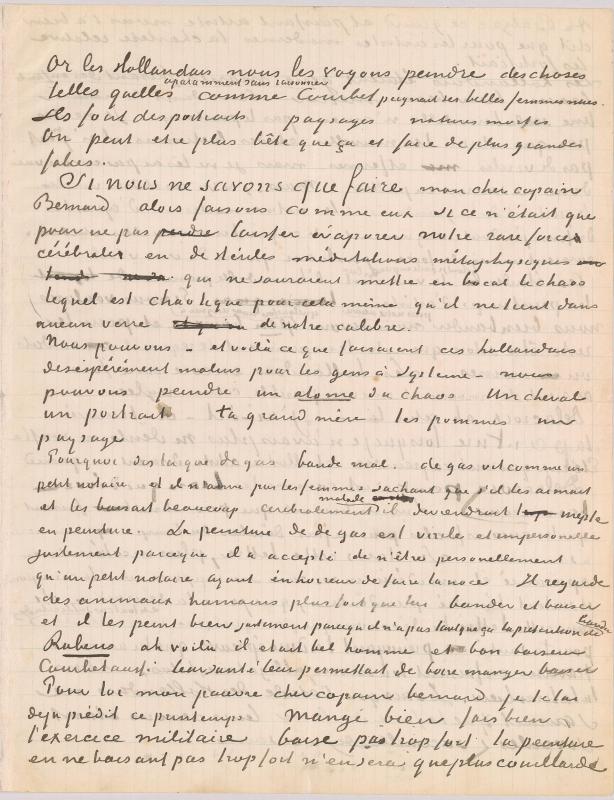 Or les Hollandais nous les voyons peindre des choses
telles quelles apparamment sans raisonner comme Courbet peignait ses belles femmes nues.
Ils font des portraits paysages natures mortes
On peut etre plus bête que ça et faire de plus grandes
folies.
Si nous ne savons que faire mon cher copain
Bernard alors faisons comme eux si ce n'était que
pour ne pas perdre laisser evaporer notre rares forces
cérébrales en de stériles méditations métaphysiques
qui ne sauraient mettre en bocal le chaos
lequel est chaotique pour cela même qu'il ne tient dans
aucun verre de notre calibre.
Nous pouvons – et voilà ce que faisaient ces hollandais
desespérément malins pour les gens à système – nous
pouvons peindre un atome du chaos Un cheval
un portrait ta grand mère les pommes un
paysage
Pourquoi dis tu que de gas bande mal. de gas vit comme un
petit notaire et il n'aime pas les femmes sachant que s'il les aimait
et les baisait beaucoup cerebralement malade il deviendrait inepte
en peinture. La peinture de de gas est virile et impersonelle
justement parceque il a accepté de n'être personellement
qu'un petit notaire ayant en horreur de faire la noce Il regarde
des animaux humains plus fort que lui bander et baiser
et il les peint bien justement parcequ'il n'a pas tant que ça la prétention de bander
Rubens ah voilà il etait bel homme et bon baiseur
Courbet aussi leur santé leur permettait de boire manger baiser
Pour toi mon pauvre cher copain bernard je te l'ai
deja prédit ce printemps Mange bien fais bien
l'exercice militaire baise pas trop fort la peinture
en ne baisant pas trop fort n'en sera que plus couillarde